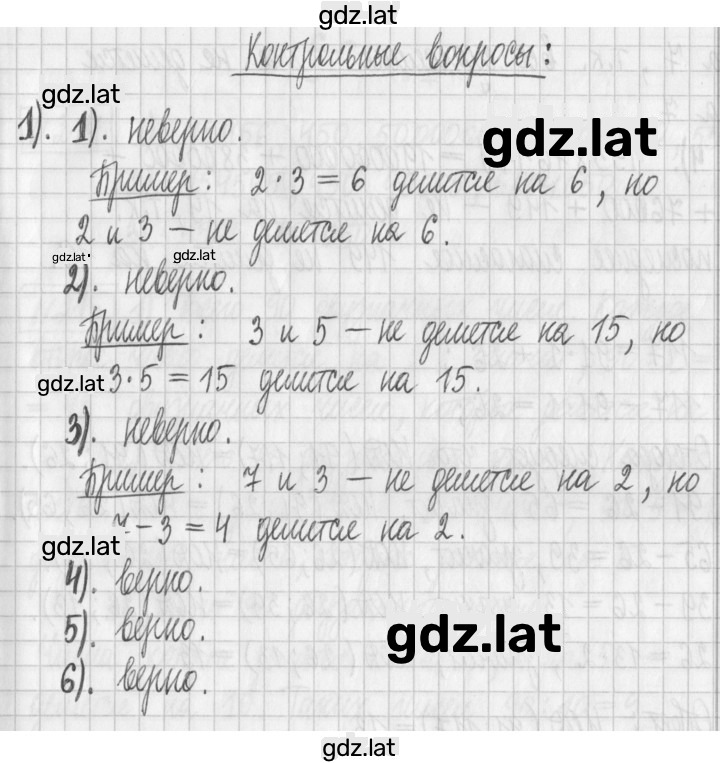 gdz.lat
Контрольные вопросы:
gdz.lat
1). 1). неверно.
gdz.lat
Пример: 2·3=6 делится на 6, но
2 и 3 — не делится на 6.
gdz.lat
gdz.lat
2). неверно.
Пример: 3 и 5 — не делится на 15, но
gdz.lat 3·5=15 делится на 15.
3). неверно.
Пример: 7 и 3 — не делится на 2, но
7-3=4 делится на 2.
gdz.lat
4). верно.
5). верно.
gdz.lat
6). верно.
gdz.lat